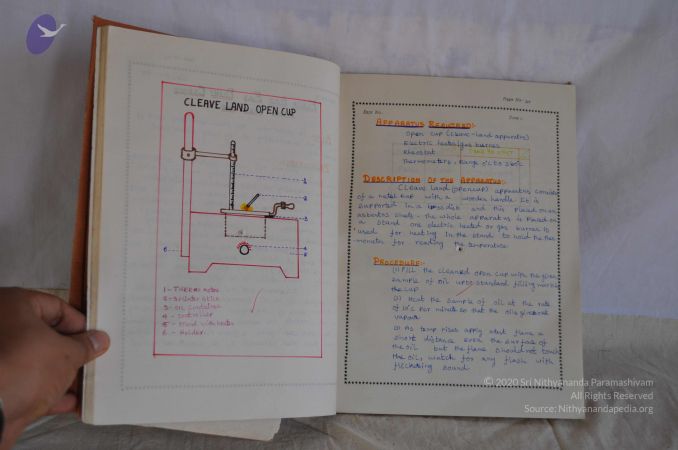 CLEAVE LAND OPEN CUP
1
2
3
4
5
6
1 - THERMO meter
3 - OIL container
4 - controller
5 - stand with heater
6 - Holder
Page No:
Expt No:
Date:
APPARATUS REQUIRED:-
Open cup (Cleave-land apparatus)
Electric heater/gas burner
Rheostat
Thermometers, Range
DESCRIPTION OF THE APPARATUS:-
CLEAVE LAND (open cup) apparatus consists
of a metal cup with a wooden handle. It is
supported in a disc and this placed on an
asbestos sheets - the whole apparatus is placed on
a stand one electric heated or gas burner is
used for heating in the stand to hold the ther
mometer for reading the temperature
PROCEDURE:-
(1) FILL the cleaned open cup with the given
sample of oil upto standard filling mark in
the cup
(2) Heat the sample of oil at the rate
of 10°c per minute so that the oil
vapour
(3) As temp rises apply flame a
short distance over the surface of
the oil but the flame should not touch
the oil, watch for any flash with
flickering sound.
© 2020 Sri Nithyananda Paramashivam
All Rights Reserved
Source: Nithyanandapedia.org